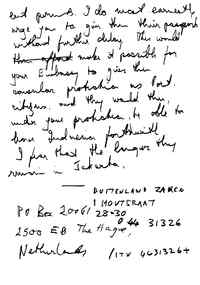 exit permits. I do most earnestly
urge you to give them their passports
without further delay. This would
make it possible for
your Embassy to give them
consular protection as Port.
citizens and they would then,
under your protection, be able to
leave Indonesia forthwith.
I fear that the longer they
remain in Jakarta.
BUITENLAND ZAKEN
1 MONTSRAAT
PO Box 20061 28-30
2500 EB The Hague, 44 31326
Netherlands / ITX 4431326+